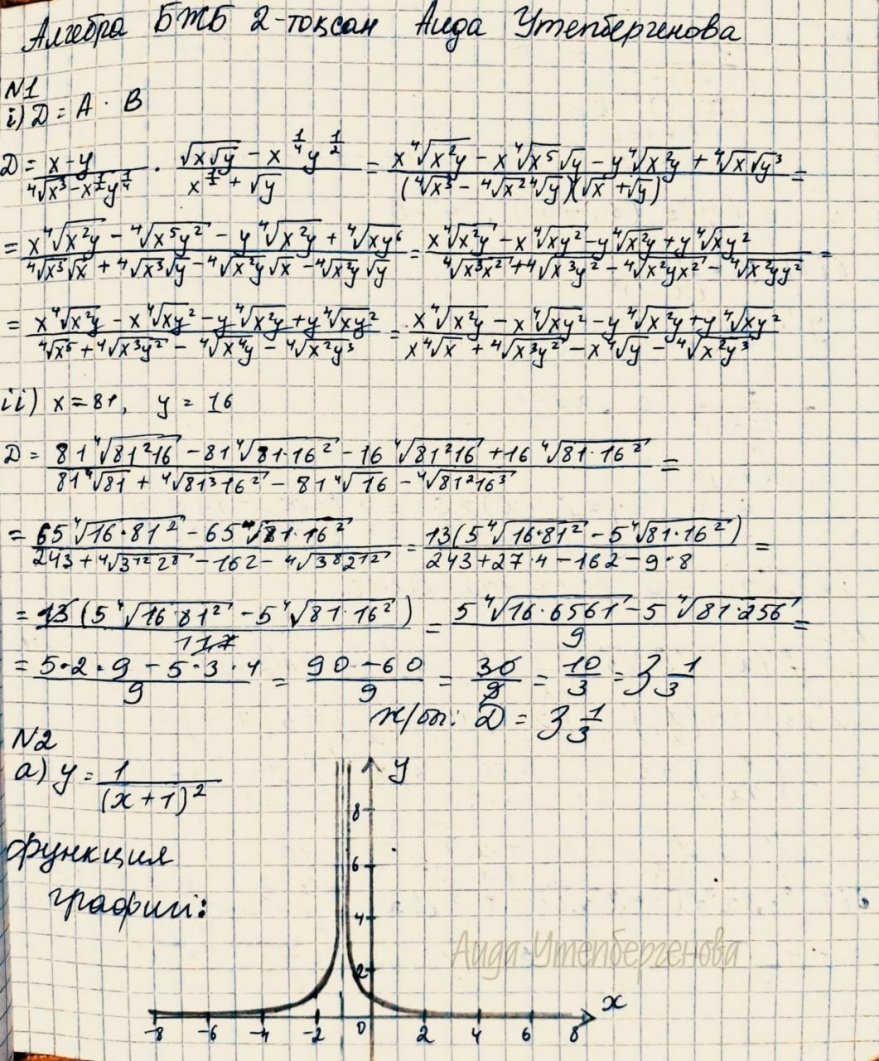 Алгебра БЖБ 2-тоқсан Аида Утепбергенова
N1
i) D = A · B
D = (x-y)/(⁴√x³ - x^(1/2)y^(1/4)) · (√(x√y) - x^(1/4)y^(1/2))/(x^(1/2) + √y) = (x⁴√(x²y) - x⁴√x⁵√y - y⁴√(x²y) + ⁴√x√y³)/((⁴√x³ - ⁴√x² ⁴√y)(√x + √y)) =
= (x⁴√(x²y) - ⁴√(x⁵y²) - y⁴√(x²y) + ⁴√(xy⁶))/(⁴√x³√x + ⁴√x³√y - ⁴√(x²y)√x - ⁴√(x²y)√y) = (x⁴√(x²y) - x⁴√(xy²) - y⁴√(x²y) + y⁴√(xy²))/(⁴√(x³x²) + ⁴√(x³y²) - ⁴√(x²yx²) - ⁴√(x²yy²)) =
= (x⁴√(x²y) - x⁴√(xy²) - y⁴√(x²y) + y⁴√(xy²))/(⁴√x⁵ + ⁴√(x³y²) - ⁴√(x⁴y) - ⁴√(x²y³)) = (x⁴√(x²y) - x⁴√(xy²) - y⁴√(x²y) + y⁴√(xy²))/(x⁴√x + ⁴√(x³y²) - x⁴√y - ⁴√(x²y³))
ii) x = 81, y = 16
D = (81⁴√(81²16) - 81⁴√(81·16²) - 16⁴√(81²16) + 16⁴√(81·16²))/(81⁴√81 + ⁴√(81³16²) - 81⁴√16 - ⁴√(81²16³)) =
= (65⁴√(16·81²) - 65⁴√(81·16²))/(243 + ⁴√(3¹²2⁸) - 162 - ⁴√(3⁸2¹²)) = 13(5⁴√(16·81²) - 5⁴√(81·16²))/(243 + 27·4 - 162 - 9·8) =
= 13(5⁴√(16·81²) - 5⁴√(81·16²))/117 = (5⁴√(16·6561) - 5⁴√(81·256))/9 =
= (5·2·9 - 5·3·4)/9 = (90 - 60)/9 = 30/9 = 10/3 = 3 1/3
ж/бы: D = 3 1/3
N2
а) y = 1/(x+1)²
функция
графигі:
y
8
6
4
2
Аида Утепбергенова
x
-8 -6 -4 -2 0 2 4 6 8